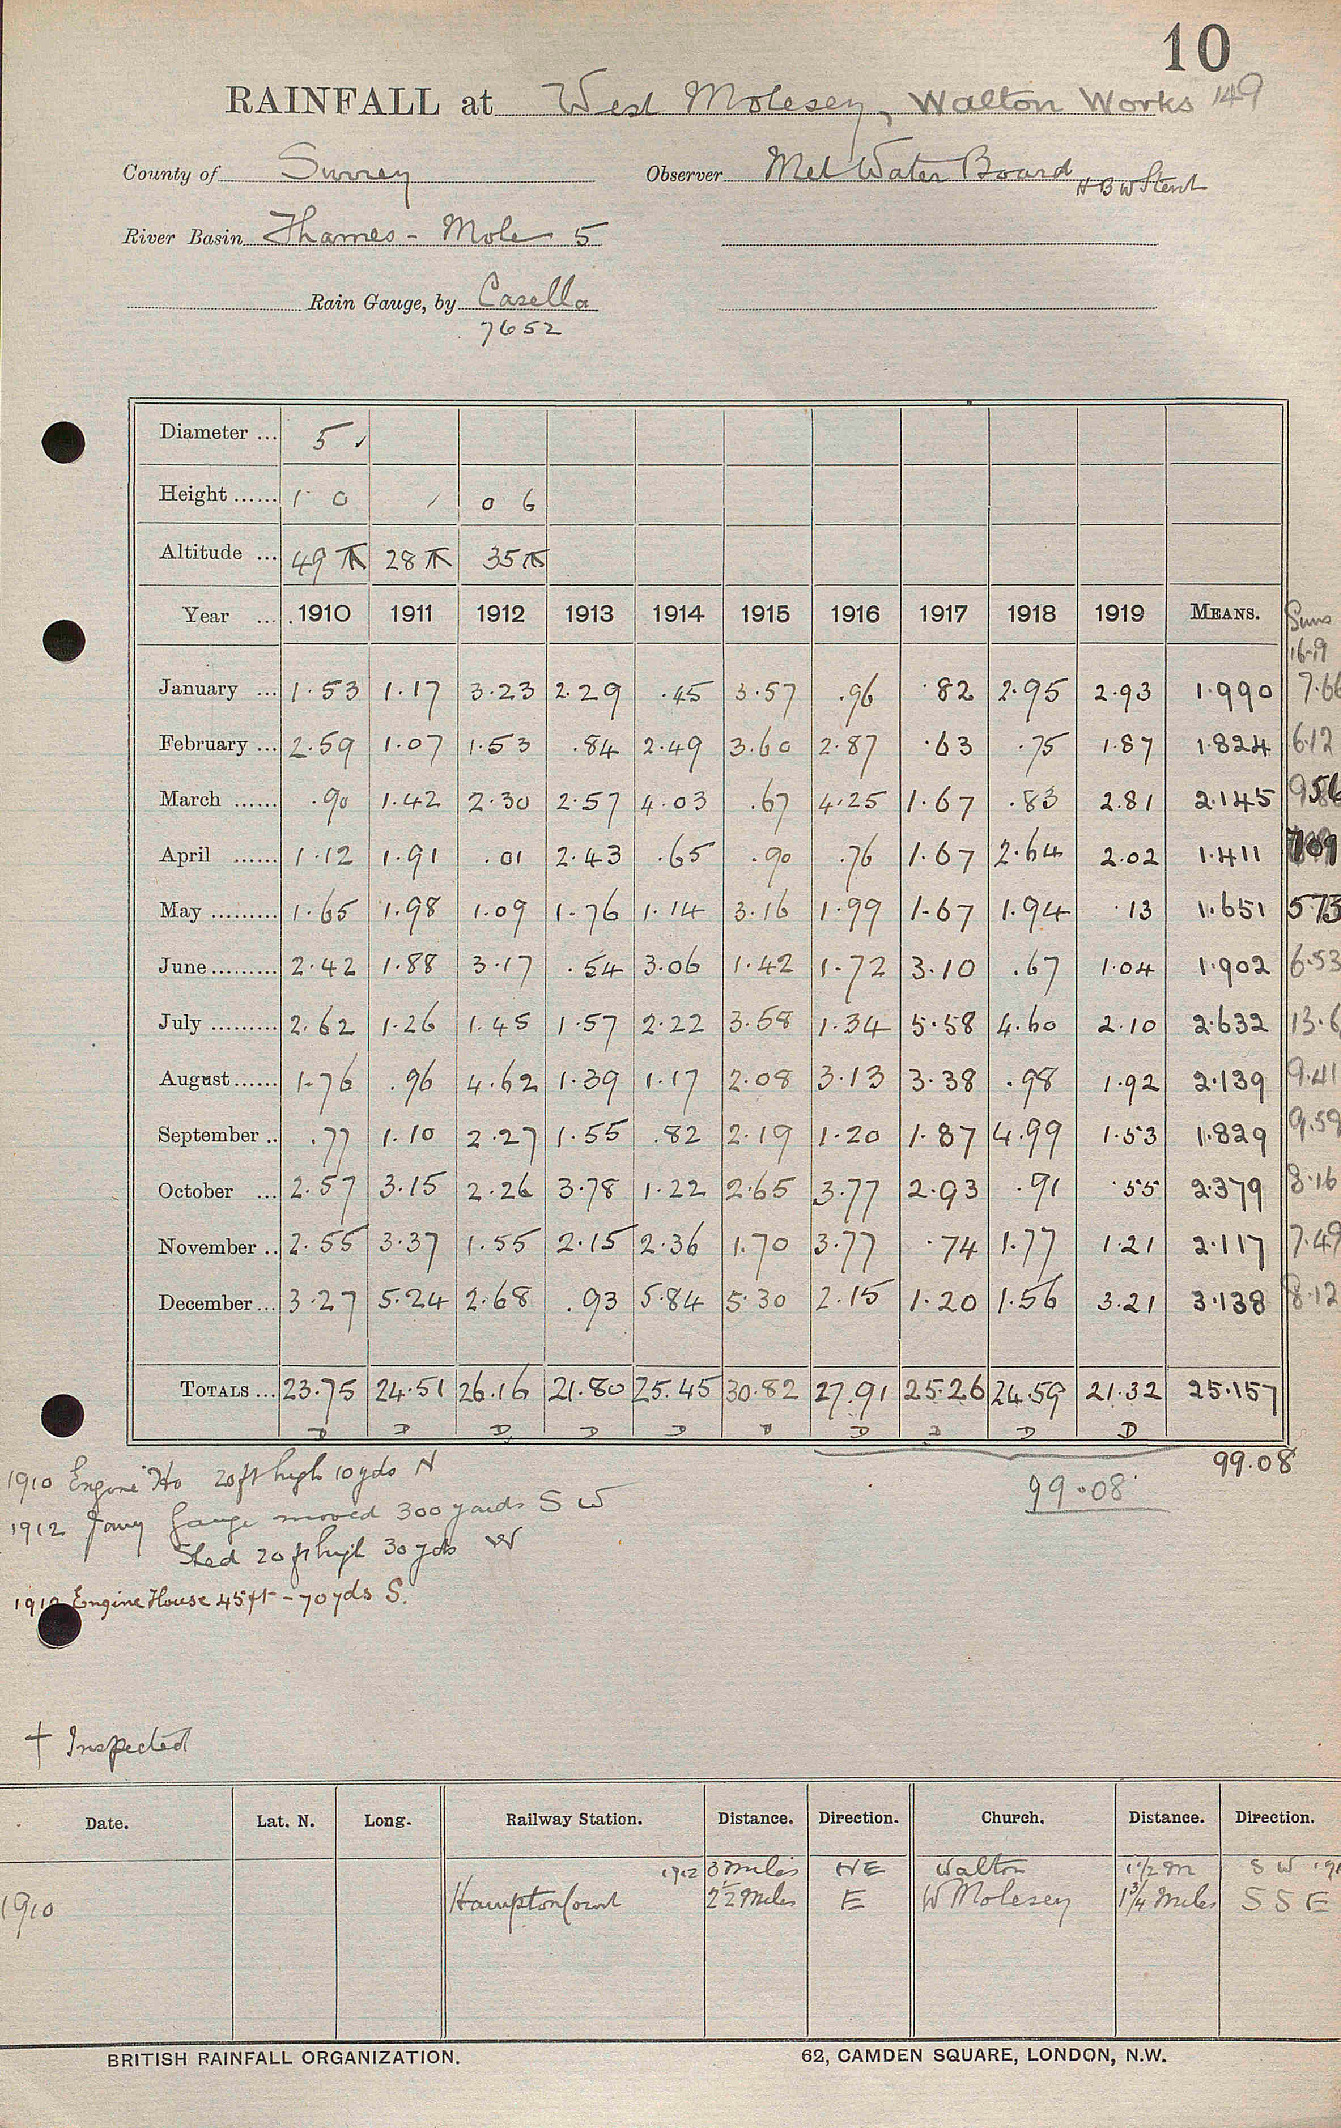 10
RAINFALL at West Molesey, Walton Works 149
County of Surrey Observer Met Water Board H B W Stent
River Basin Thames - Mole 5
Rain Gauge, by Casella
7652
Diameter ... 5
Height ...... 1 0 0 6
Altitude ... 49 28 35
Year ... 1910 1911 1912 1913 1914 1915 1916 1917 1918 1919 MEANS. Sums
16-19
January ... 1.53 1.17 3.23 2.29 .45 3.57 .96 .82 2.95 2.93 1.990 7.66
February ... 2.59 1.07 1.53 .84 2.49 3.60 2.87 .63 .75 1.87 1.824 6.12
March ...... .90 1.42 2.30 2.57 4.03 .67 4.25 1.67 .83 2.81 2.145 956
April ...... 1.12 1.91 .01 2.43 .65 .90 .76 1.67 2.64 2.02 1.411 709
May ......... 1.65 1.98 1.09 1.76 1.14 3.16 1.99 1.67 1.94 .13 1.651 573
June ......... 2.42 1.88 3.17 .54 3.06 1.42 1.72 3.10 .67 1.04 1.902 6.53
July ......... 2.62 1.26 1.45 1.57 2.22 3.58 1.34 5.58 4.60 2.10 2.632 13.6
August ...... 1.76 .96 4.62 1.39 1.17 2.08 3.13 3.38 .98 1.92 2.139 9.41
September .. .77 1.10 2.27 1.55 .82 2.19 1.20 1.87 4.99 1.53 1.829 9.59
October ... 2.57 3.15 2.26 3.78 1.22 2.65 3.77 2.93 .91 .55 2.379 8.16
November .. 2.55 3.37 1.55 2.15 2.36 1.70 3.77 .74 1.77 1.21 2.117 7.49
December ... 3.27 5.24 2.68 .93 5.84 5.30 2.15 1.20 1.56 3.21 3.138 8.12
TOTALS ... 23.75 24.51 26.16 21.80 25.45 30.82 27.91 25.26 24.59 21.32 25.157
D D D D D D D D D D
99.08
99.08
1910 Engine Ho 20ft high 10yds N
1912 Jany Gauge moved 300 yards S W
Shed 20 ft high 30 yds W
1912 Engine House 45ft - 70yds S.
† Inspected
Date. Lat. N. Long. Railway Station. Distance. Direction. Church. Distance. Direction.
1912 3 miles NE Walton 1½ m S W 191
1910 Hampton Court 2½ Miles E W Molesey 1¾ Miles S S E
BRITISH RAINFALL ORGANIZATION. 62, CAMDEN SQUARE, LONDON, N.W.